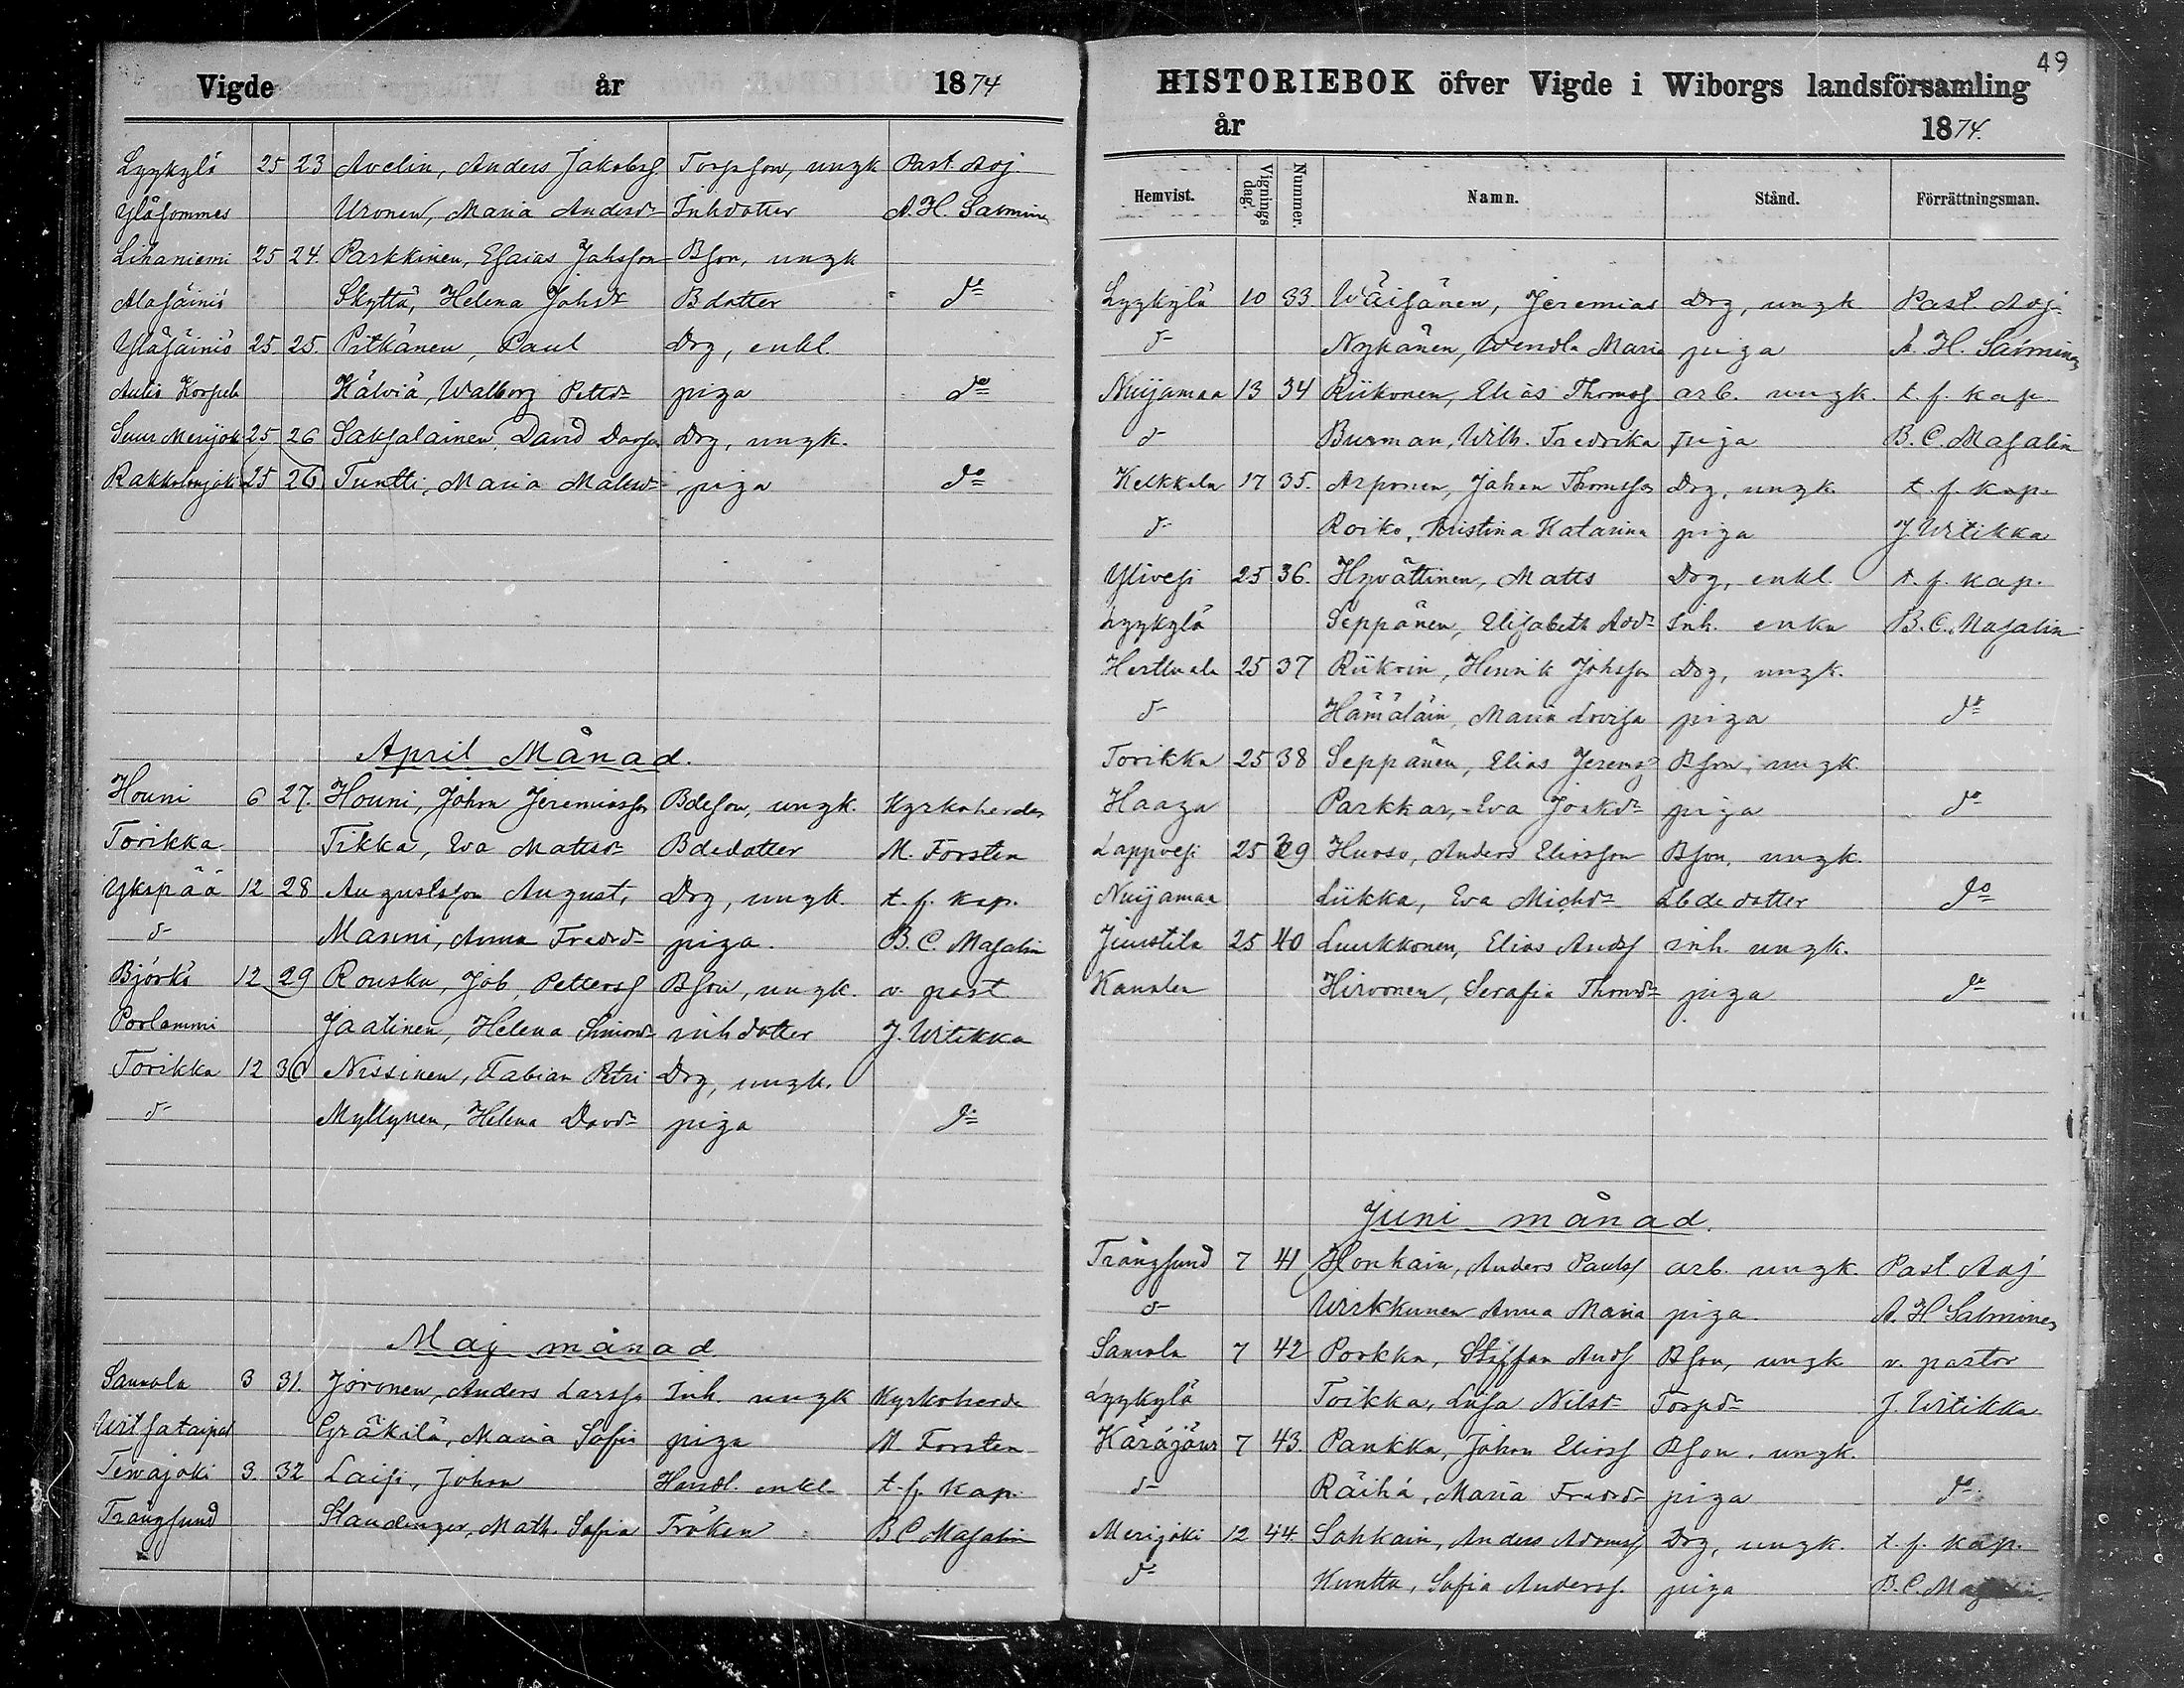 Vigde år 1874
Lyykylä 25 23 Avelin, Anders Jakobsf. Torpson, ungk Past. Adj.
Yläsommes Uronen, Maria Andersdr Inhdotter A. H. Salminen
Lihaniemi 25 24. Parkkinen, Esaias Johsson Bson, ungk
Alasäiniö Skyttä, Helena Johsdr Bdotter do
Yläsäiniö 25. 25. Pitkänen, Paul Drg, enkl.
Autio Korpela Kälviä, Walborg Pettdr piga do
Suur Merijoki 25 26 Saksalainen, David Davss Drg, ungk.
Rakkolanjoki 25 26 Tuntti, Maria Matsdr piga do
April Månad.
Houni 6 27. Houni, Johan Jeremiasson Bdeson, ungk. Kyrkoherden
Torikka Tikka, Eva Mattsdr Bdedotter M. Forsten
Ykspää 12 28 Augustsson August, Drg, ungk. t. f. kap.
d- Manni, Anna Fredrdr piga. B. C. Masalin
Björkö 12 29 Rousku, Job, Petterss Bson, ungk. v. past
Porlammi Jaatinen, Helena Simonsdr inhdotter J. Witikka
Torikka 12 30 Nissinen, Fabian Petri Drg, ungk.
d- Myllynen, Helena Davdr piga do
Maj månad
Samola 3 31. Joronen, Anders Larsson Inh. ungk Kyrkoherde
Uitsataipal Gräkilä, Maria Sofia piga M Forsten
Terwajoki 3. 32 Laisi, Johan Handl. enkl. t. f. kap.
Trångsund Staudinger, Math. Sofia Fröken B C Masalin
49
HISTORIEBOK öfver Vigde i Wiborgs landsförsamling
år 1874.
Hemvist. Vignings dag. Nummer. Namn. Stånd. Förrättningsman.
Lyykylä 10 33. Wäisänen, Jeremias Drg, ungk Past Adj.
d- Nykänen, Wendla Maria piga A. H. Salminen
Nuijamaa 13 34 Riikonen, Elias Thomss. arb. ungk. t. f. kap
d- Burman, Wilh. Fredrika piga B. C. Masalin
Kelkkala 17 35. Arponen, Johan Thomsson Drg, ungk. t. f. kap.
d- Roiko, Kristina Katarina piga J. Witikka
Ylivesi 25 36. Hyvättinen, Matts Drg, enkl. t. f. kap.
Lyykylä Seppänen, Elisabeth Addr Inh. enka B. C. Masalin
Herttuala 25 37 Riikoin, Henrik Johsson Drg, ungk.
d- Hämäläin, Maria Lovisa piga do
Torikka 25 38 Seppänen, Elias Jerems Bson, ungk.
Haaga Parkkar, Eva Joakdr piga do
Lappvesi 25 39 Hurso, Anders Eliasson Bson, ungk.
Nuijamaa Liikka, Eva Michdr Lbdedotter do
Juustila 25 40 Luukkonen, Elias Andsf inh. ungk.
Kanalen Hirvonen, Serafia Thomdr piga do
Juni månad.
Trångsund 7 41 Honkain, Anders Paulsf arb. ungk. Past Adj
d- Wirkkunen Anna Maria piga. A. H Salminen
Samola 7 42 Porkka, Staffan Andsf Bson, ungk v. pastor
Lyykylä Toikka, Lisa Nilsdr Torpdr J. Witikka
Käräjäin 7 43. Pankka, Johan Eliasf Bson. ungk.
d- Räihä, Maria Fredrdr piga do
Merijoki 12 44. Sahkain, Anders Adamsf Drg, ungk. t. f. kap.
d- Kuntta, Sofia Anderss. piga B. C.